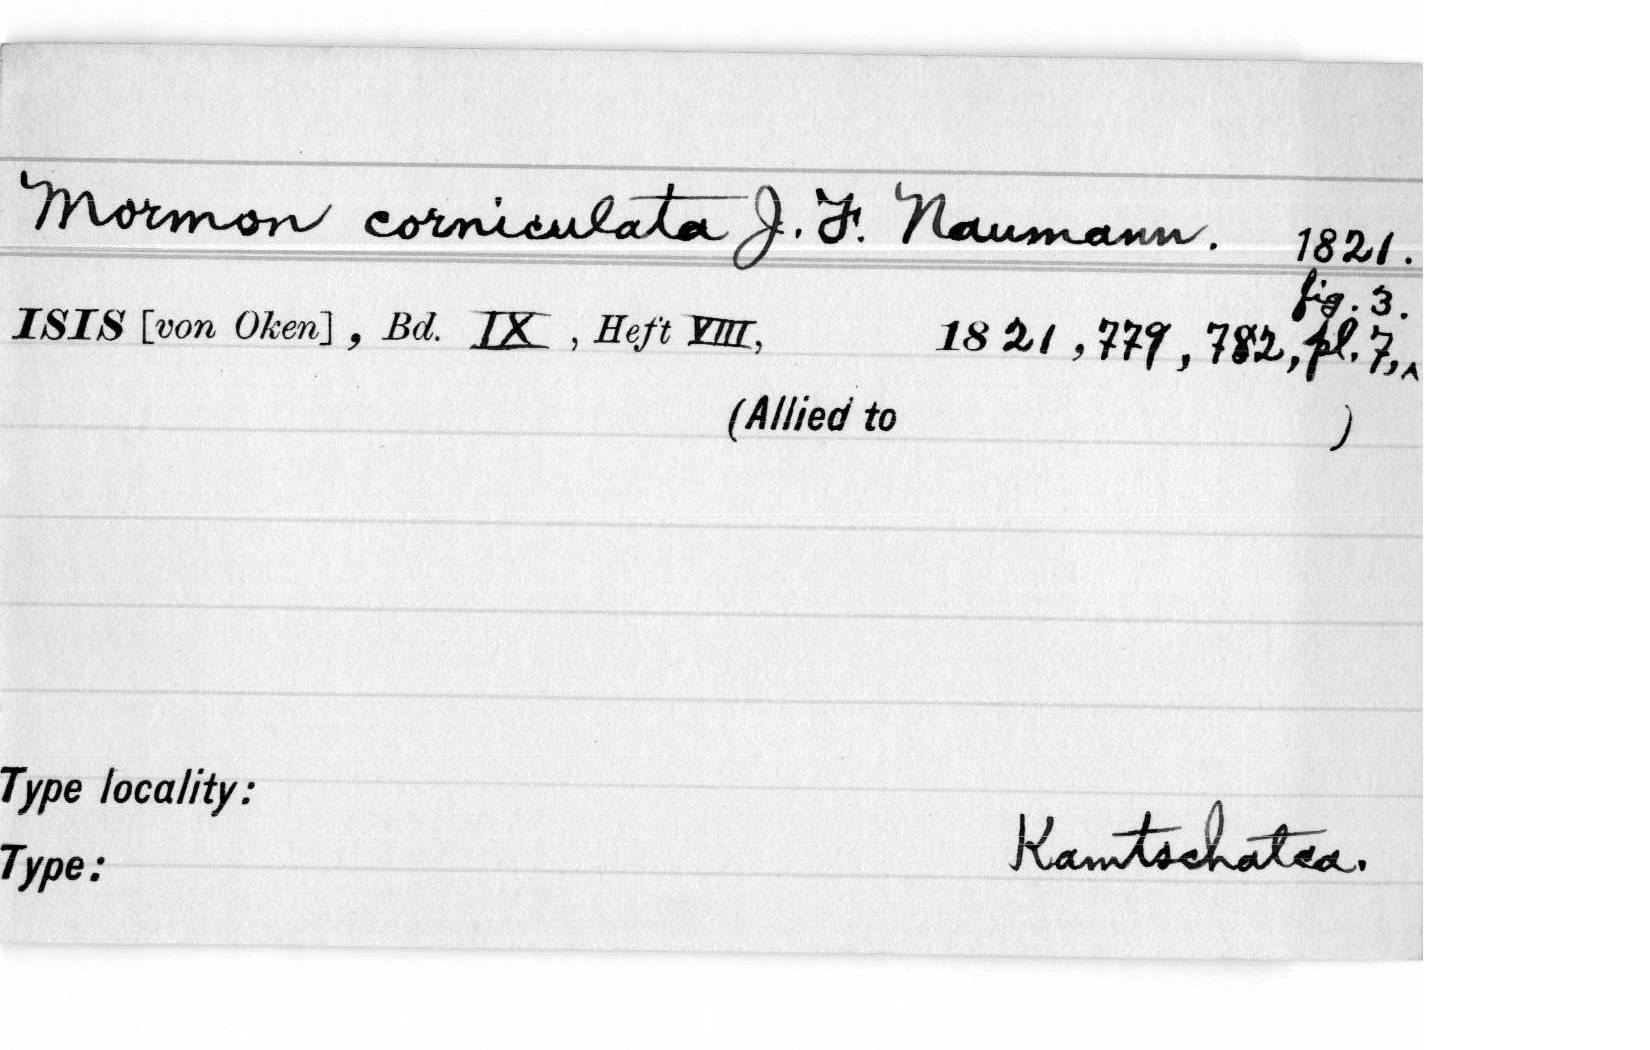 Mormon corniculata J. F. Naumann. 1821.
fig. 3.
ISIS [von Oken], Bd. IX, Heft VIII, 1821, 779, 782, pl. 7,^
(Allied to )
Type locality:
Kamtschatca.
Type: